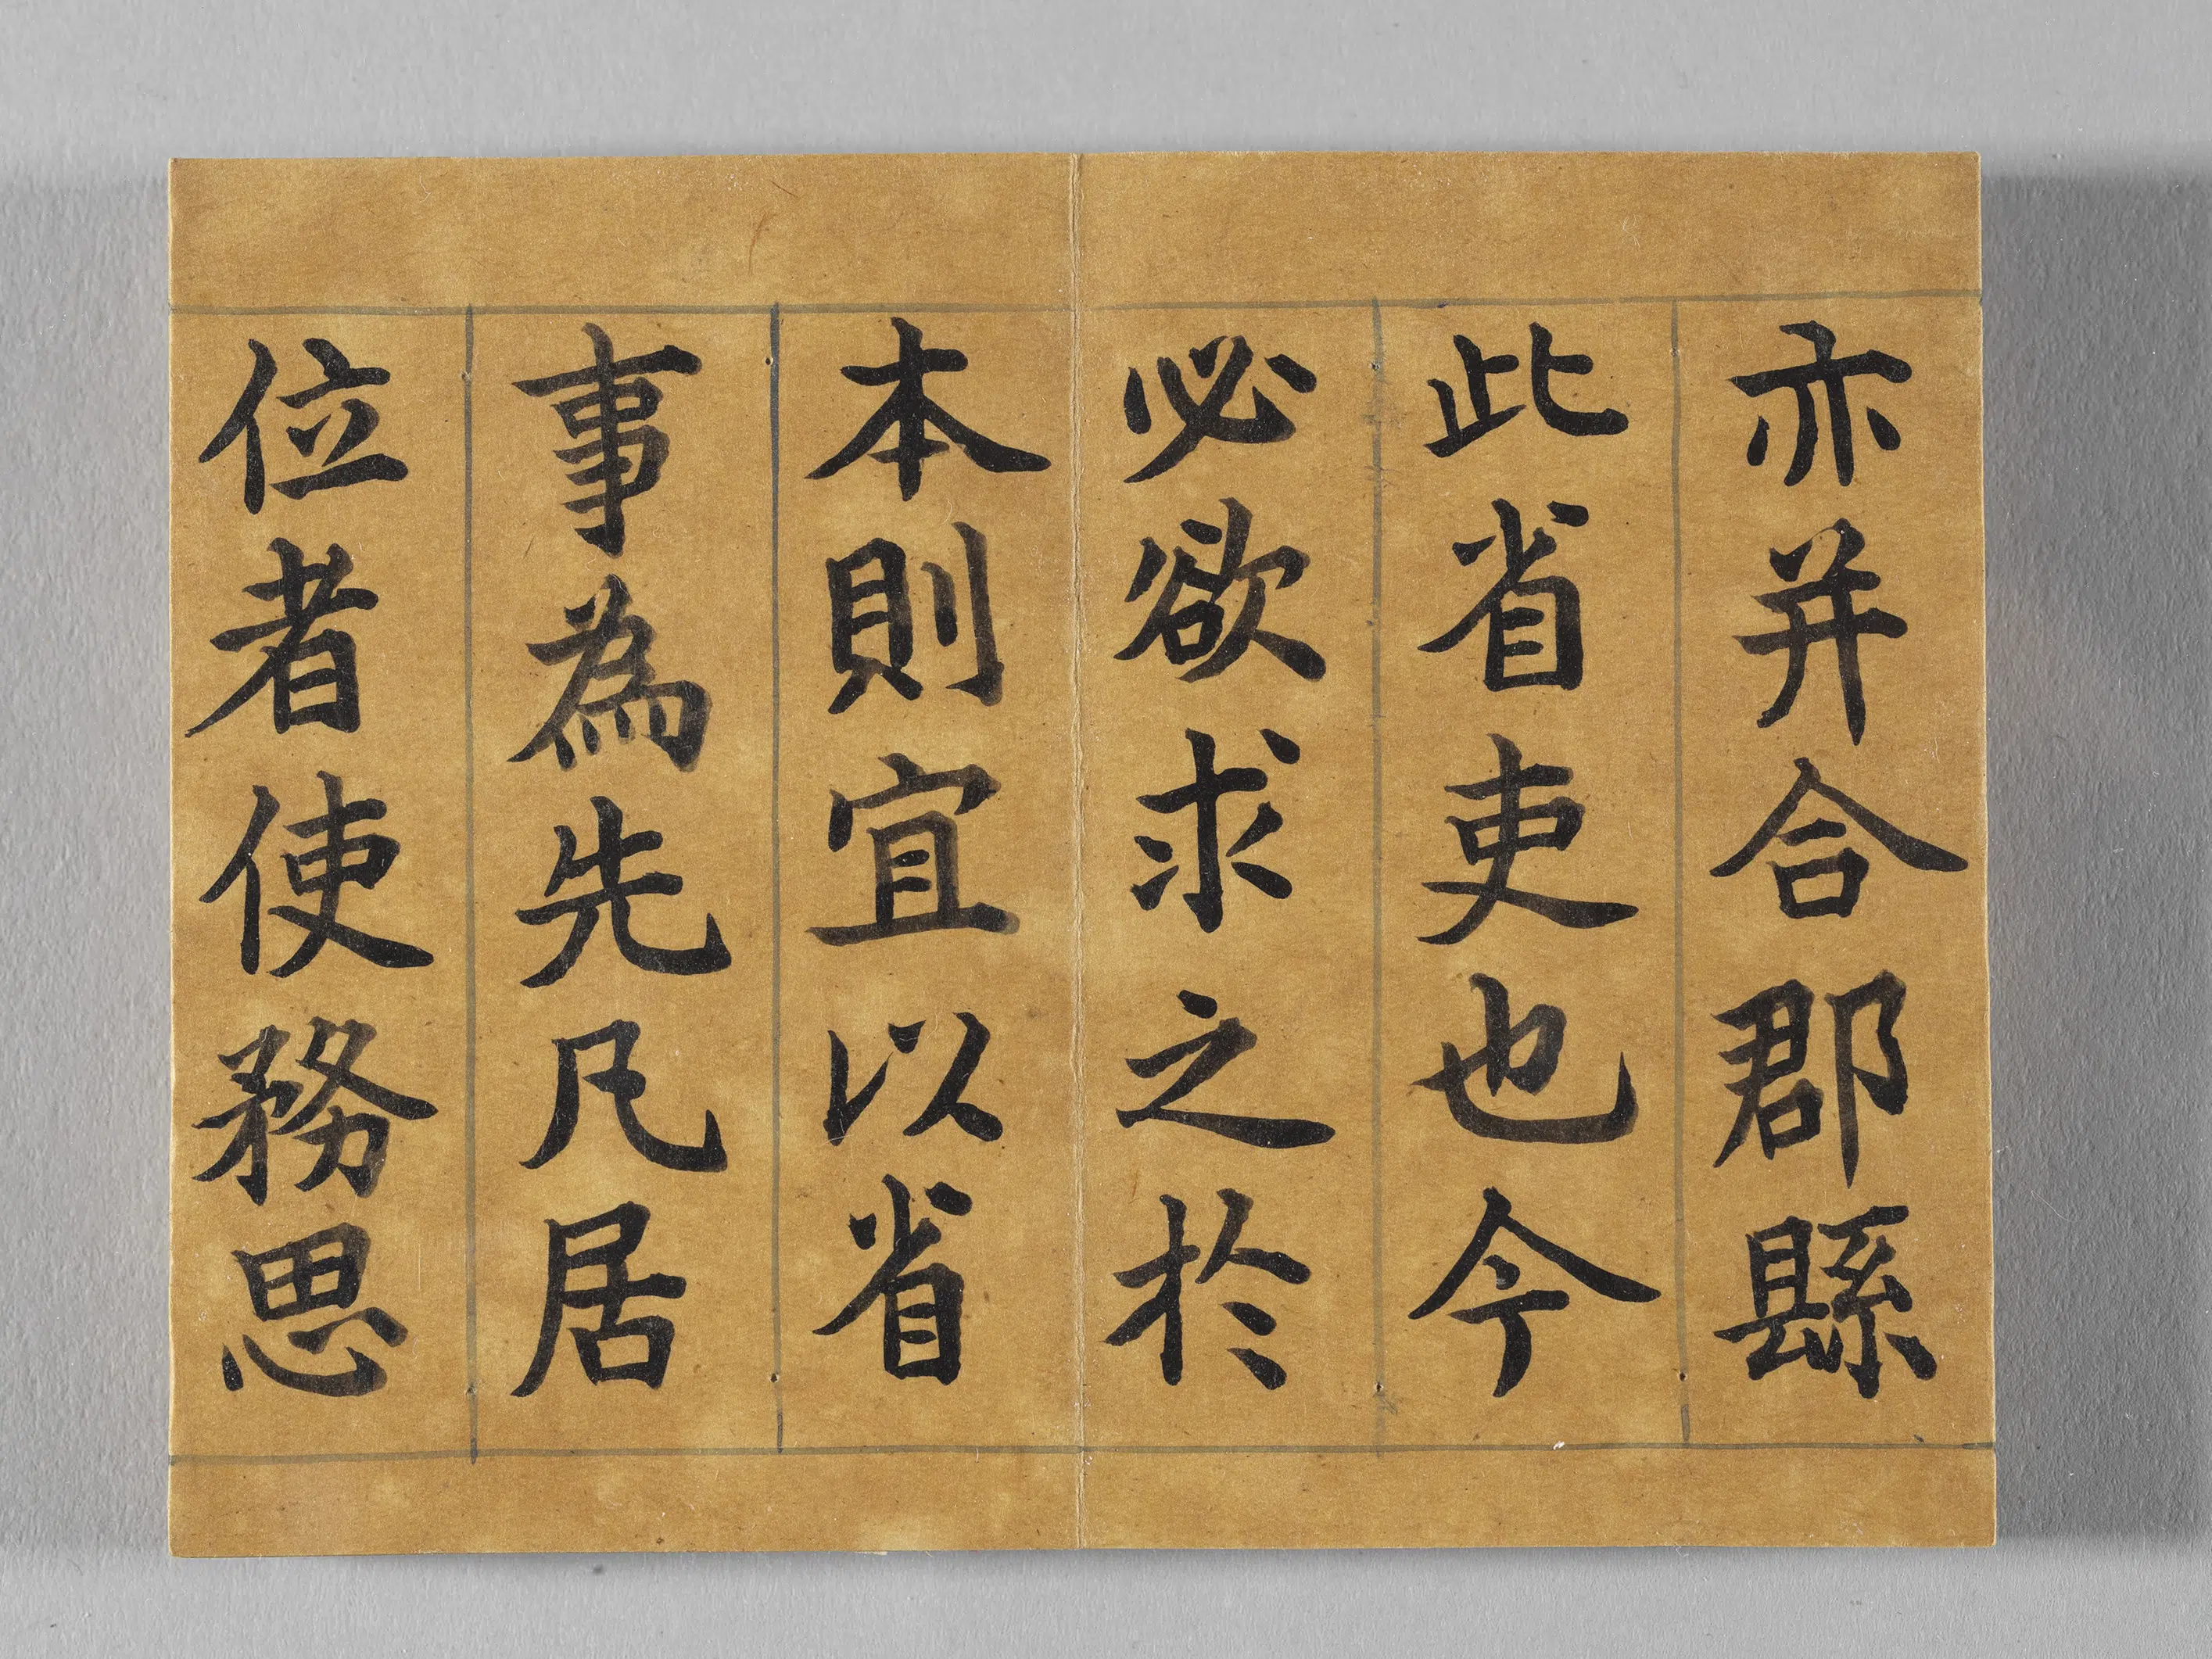 亦并合郡縣
此省吏也今
必欲求之於
本則宜以省
事為先凡居
位者使務思